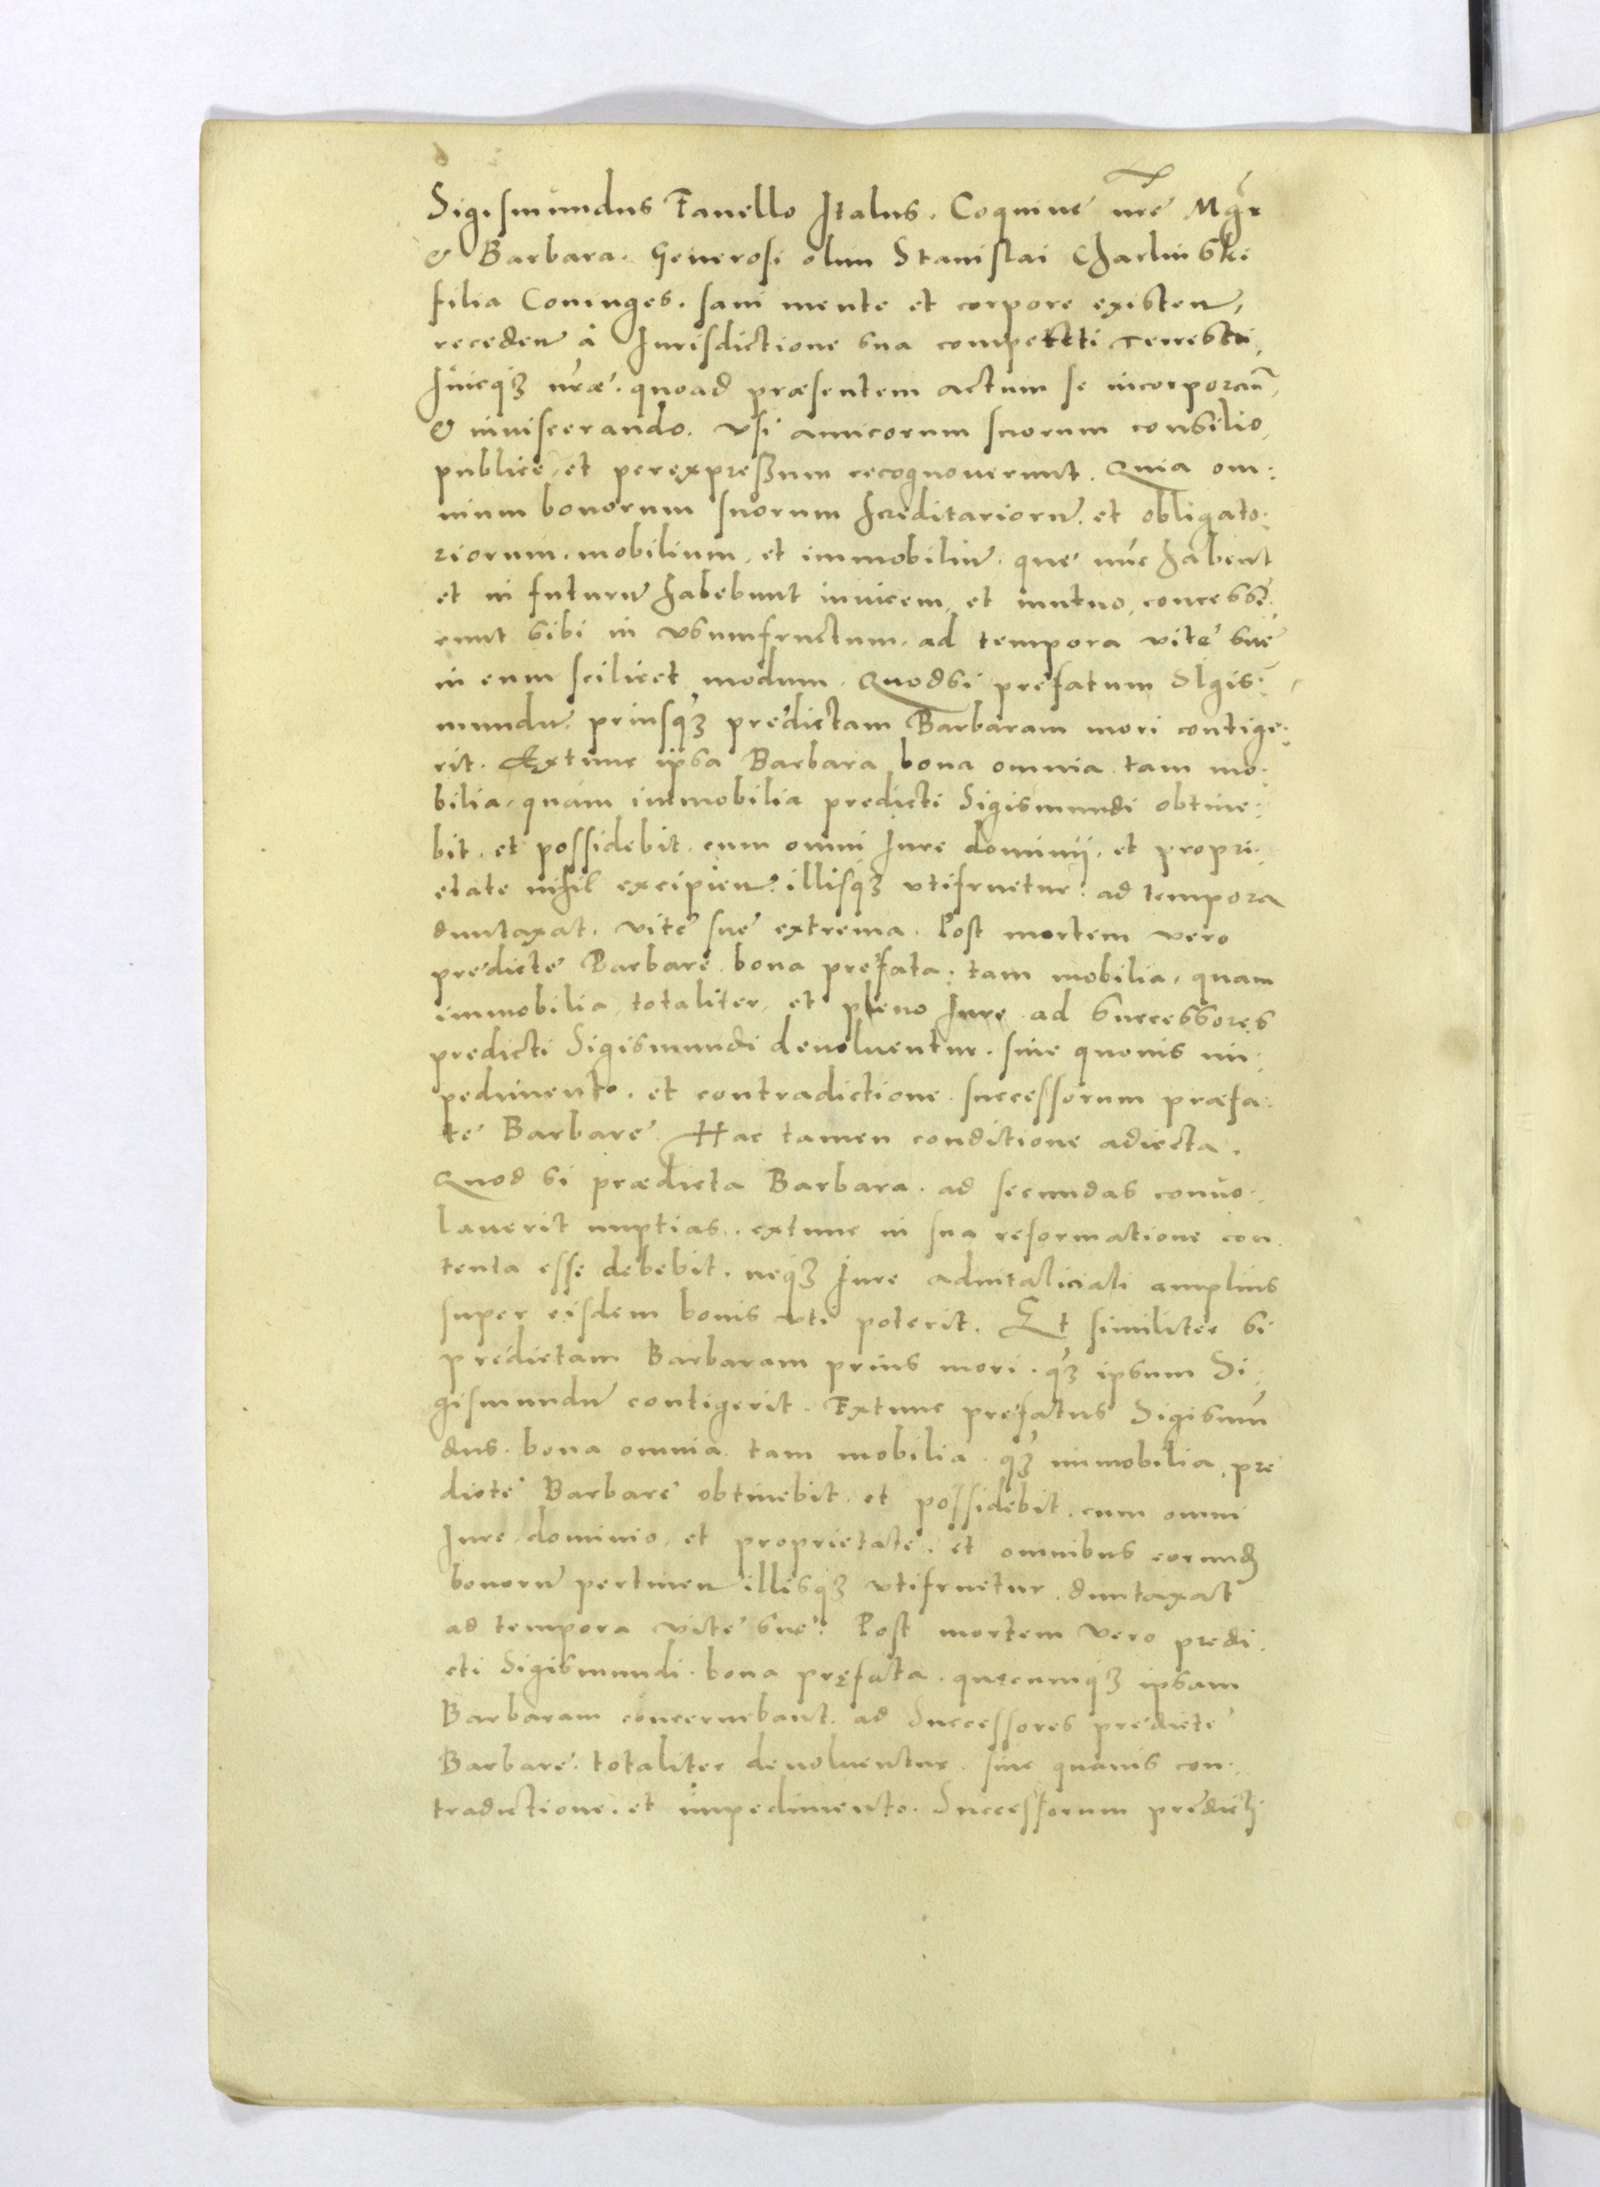 Sigismundus Fanello Italus. Coquine nrē Mgr̄
& Barbara. Generosi olim Stanislai Charlinski
filia Coniuges. sani mente et corpore existen̄,
receden̄ à Iurisdictione sua competēti Terrestri,
Huicq3 nrae. quoad praesentem actum se incorporan̄,
& inviscerando. Vsi amicorum suorum consilio,
publice, et per expressum recognoverunt. Quia om:
nium bonorum suorum hereditariorū. et obligato:
riorum. mobilium, et immobiliū. que nūc habent
et in futurū habebunt invicem, et mutuo, concesse:
runt sibi in vsumfructum. ad tempora vite sue
in eum scilicet modum. Quodsi prefatum Sigis:
mundū. priusq3 predictam Barbaram mori contige:
rit. Extunc ipsa Barbara bona omnia tam mo:
bilia, quàm immobilia predicti Sigismundi obtine:
bit, et possidebit. cum omni Iure dominij, et propri:
etate nihil excipien̄. illisq3 vtifruetur. ad tempora
duntaxat. vite sue extrema. Post mortem vero
predicte Barbare. bona prefata. tam mobilia, quam
immobilia, totaliter, et pleno Iure ad successores
predicti Sigismundi devoluentur. sine quovis im:
pedimento. et contradictione successorum praefa:
te Barbare. Hac tamen conditione adiecta.
Quod si praedicta Barbara. ad secundas convo:
laverit nuptias. extunc in sua reformatione con:
tenta esse debebit. neq3 Iure advitaliciali amplius
super eisdem bonis vti poterit. Et similiter si
predictam Barbaram prius mori. q3 ipsum Si:
gismundū contigerit. Extunc prefatus Sigismū
dus. bona omnia. tam mobilia. q3 immobilia, pre
dicte Barbare obtinebit. et possidebit. cum omni
Iure, dominio, et proprietate. et omnibus eorund3
bonorū pertinen̄ illisq3 vtifruetur. duntaxat
ad tempora vite sue. Post mortem vero predi:
cti Sigismundi. bona pręfata. quęcumq3 ipsam
Barbaram concernebant. ad Successores predicte
Barbare. totaliter devoluentur. sine quavis con:
tradictione. et impedimento. Successorum predicti